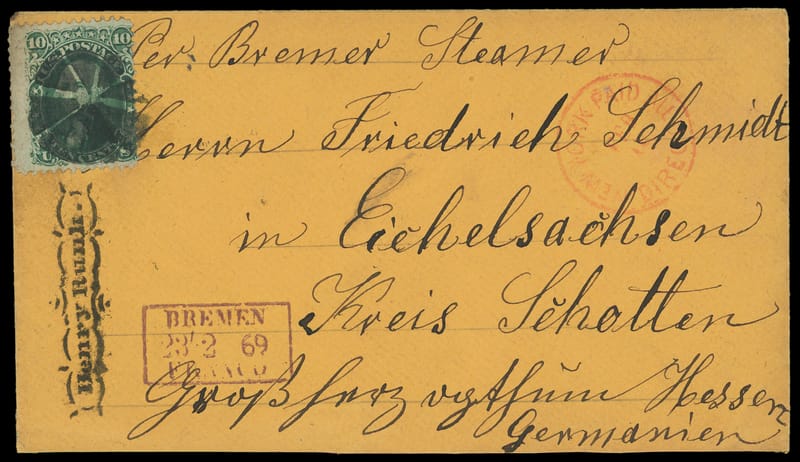 10 10
U.S. POSTAGE
Per Bremer Steamer
Herrn Friedrich Schmidt
in Eichelsachsen
Kreis Schotten
Großherzogthum Hessen
Germanien
NEW YORK PAID ALL DIRECT
Henry Runk.
BREMEN
23/2 69
FRANCO